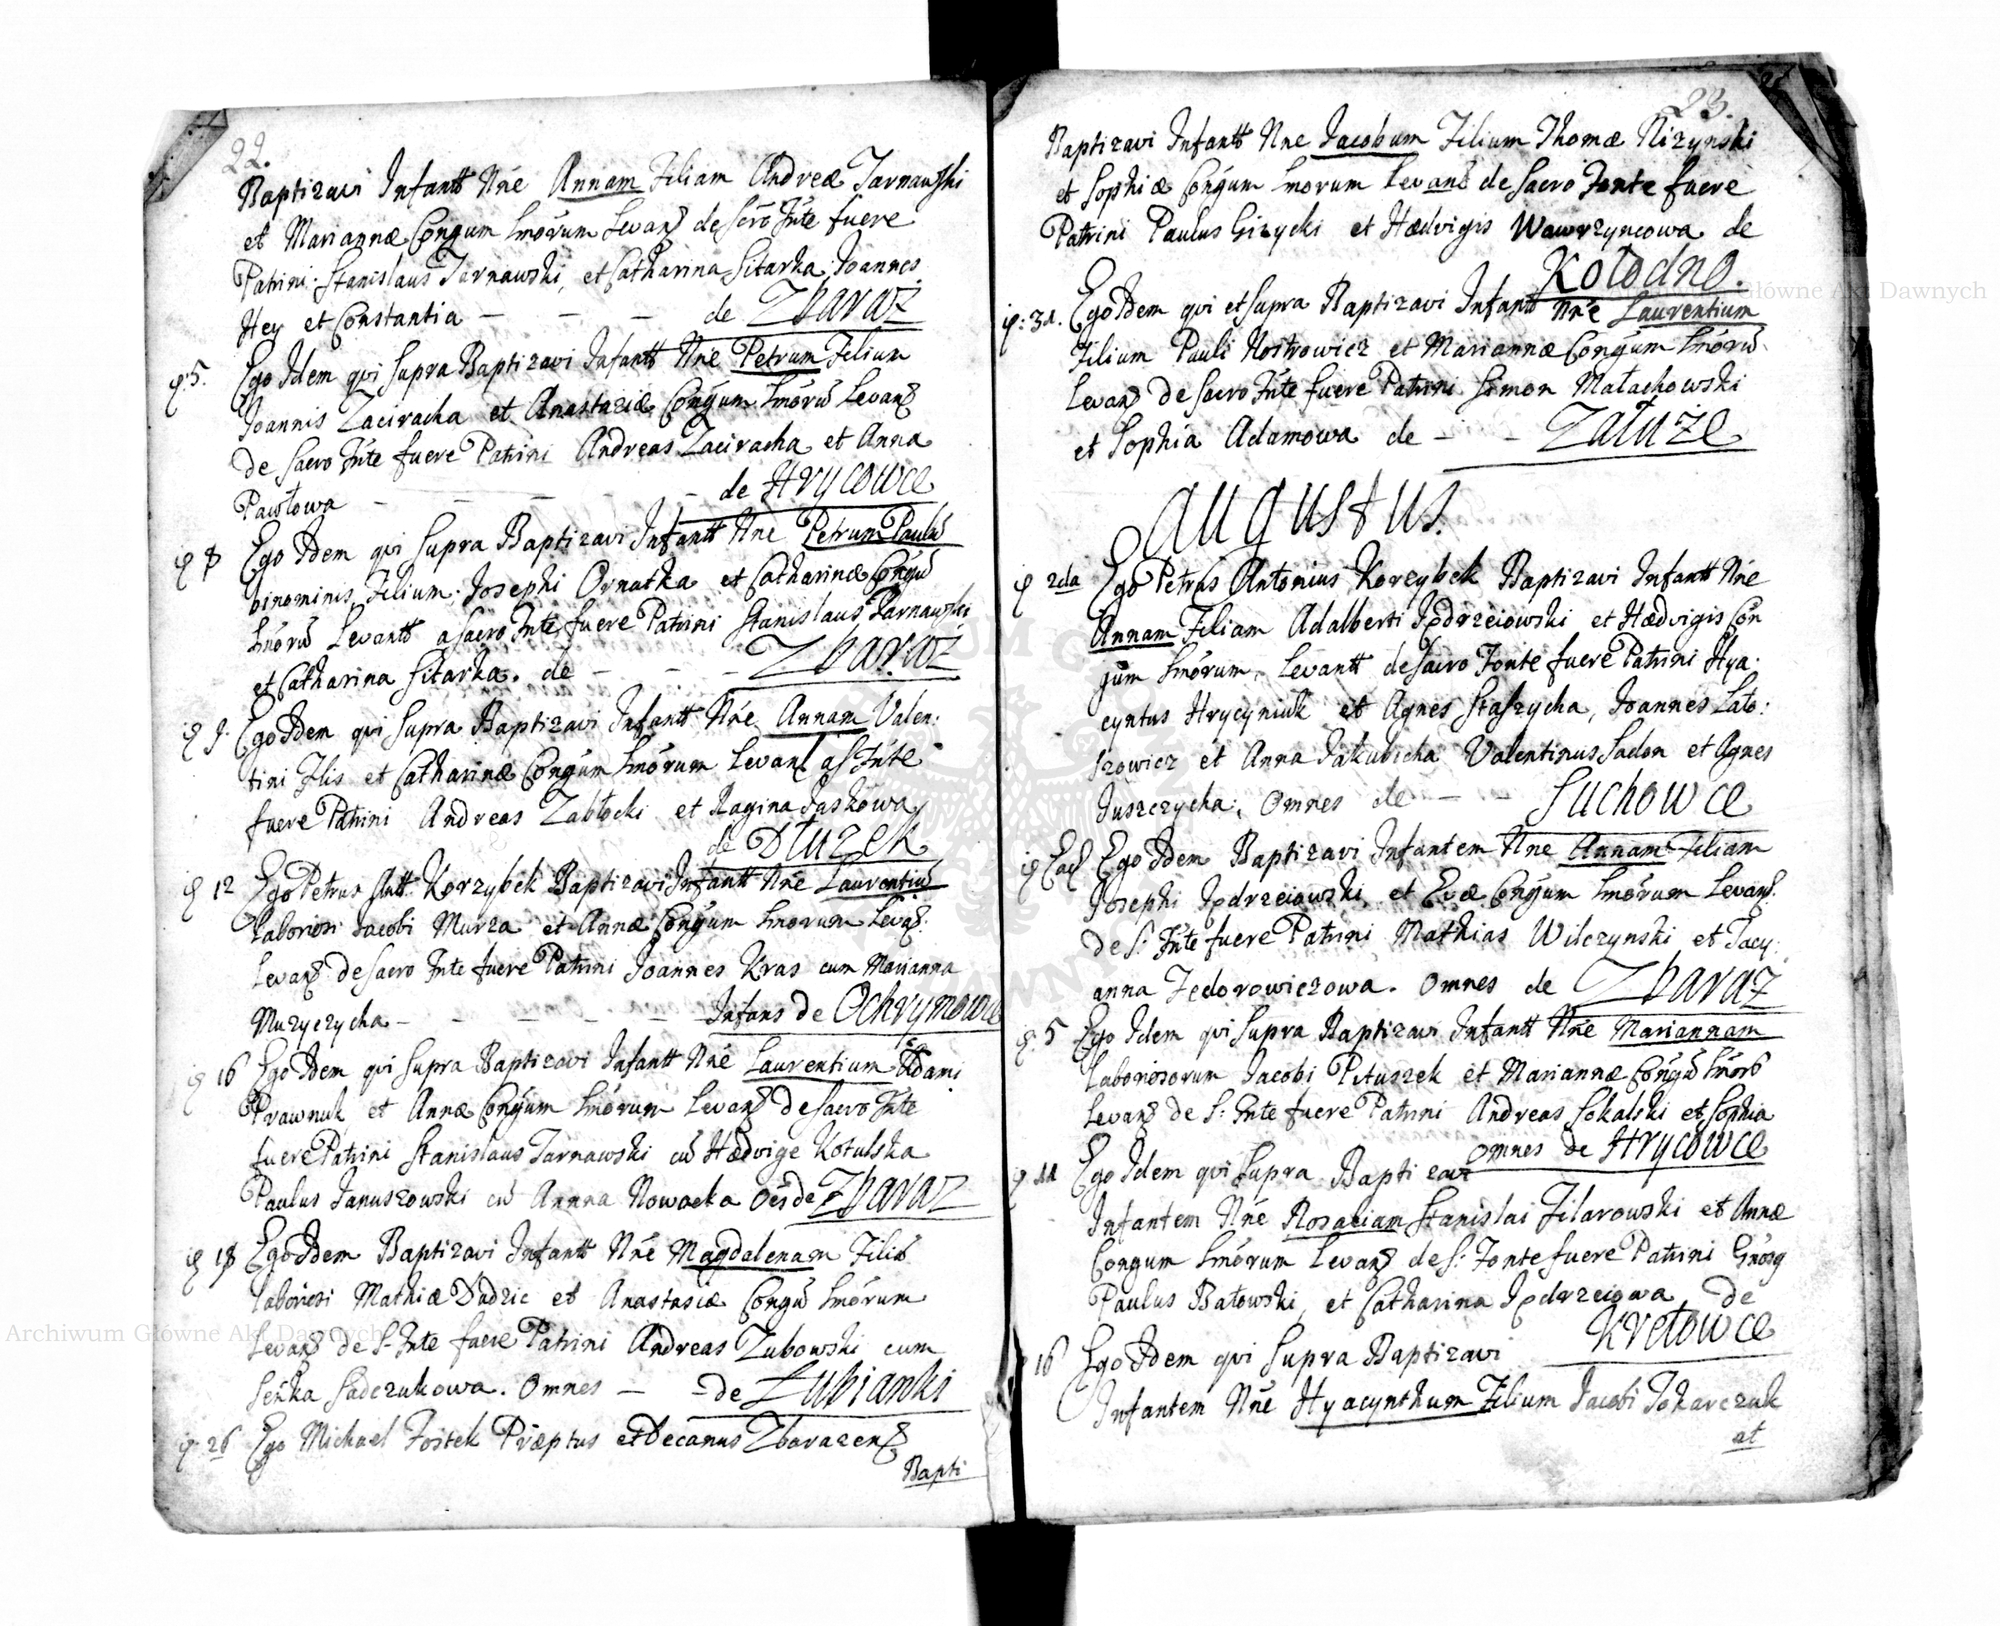 22.
Baptizavi Infantt Nńe Annam Filiam Andreæ Tarnawski
et Mariannæ Congum Lmőrum Levanß de Scro Fńte fuere
Patrini Stanislaus Tarnawski, et Catharina Sitarka, Joannes
Hey et Constantia – – – de Zbaraż
5. Ego Idem qui supra Baptizavi Infantt Nńe Petrum Filium
Joannis Zaciracha et Anastaziæ Congum Lmőrũ Levanß
de Sacro Fńte fuere Patrini Andreas Zaciracha et Anna
Pawłowa – – – – – de Hrycowce
8 Ego Idem qui supra Baptizavi Infantt Nńe Petrum Paulũ
binominis Filium Josephi Ornatka et Catharinæ Congũ
Lmőrũ Levantt a Sacro Fńte fuere Patrini Stanislaus Tarnawski
et Catharina Sitarka. de – – – Zbaraż
9. Ego Idem qui supra Baptizavi Infantt Nńe Annam Valen:
tini Ilis et Catharinæ Congum Lmőrum Levanß a S. Fńte
fuere Patrini Andreas Zabłocki et Ragina Jaskowa
de Dłuzek
12 Ego Petrus Antt. Korzybek Baptizavi Infantt Nńe Laurentiũ
Laboriosi Jacobi Murza et Annæ Congum Lmorum Levaß:
Levanß de Sacro Fnte fuere Patrini Joannes Kras cum Marianna
Muzyczycha – – – – – Infans de Ochrymowce
16 Ego Idem qui supra Baptizavi Infantt Nńe Laurentium Adami
Prawnuk et Annæ Congum Lmőrum Levanß de Sacro Fńte
fuere Patrini Stanislaus Tarnawski cũ Hædvige Kotulska
Paulus Januszowski cũ Annna Nowacka Oēs de Zbaraz
18 Ego Idem Baptizavi Infantt Nńe Magdalenam Filiã
Laboriosi Mathiæ Dudzic et Anastasiæ Congũ Lmőrum
Levanß de S. Fńte fuere Patrini Andreas Zubowski cum
Seńka Sadczukowa. Omnes – – de Lubianki
26 Ego Michael Foitek Præptus et Decanus Zbarazenß
Bapti
23.
Baptizavi Infantt Nne Jacobum Filium Thomæ Nizynski
et Sophiæ Congum Lmorum Levanß de Sacro Fonte fuere
Patrini Paulus Gizycki et Hædvigis Wawrzyncowa de
Kołodno.
31. Ego Idem qui et supra Baptizavi Infantt Nńe Laurentium
Filium Pauli Nostrowicz et Mariannæ Congum Lmőrũ
Levanß de Sacro Fńte fuere Patrini Simon Małachowski
et Sophia Adamowa de – – Załuże
Augustus.
2da Ego Petrus Antonius Korzybek Baptizavi Infantt Nńe
Annam Filiam Adalberti Jędrzeiowski et Hædvigis Con
jum Lmőrum, Levantt de Sacro Fonte fuere Patrini Hya:
cyntus Hrycyniuk et Agnes Staszycha, Joannes Lato:
szowicz et Anna Jakubicha Valentinus Sadon et Agnes
Juszczycha, Omnes de – – Suchowce
Ead Ego Idem Baptizavi Infantem Nne Annam Filiam
Josephi Jędrzeiowski et Evæ Congum Lmőrum Levanß.
de S. Fńte fuere Patrini Mathias Wilczynski et Jacy:
anna Fedorowiczowa. Omnes de Zbaraż
5 Ego Idem qui supra Baptizavi Infantt Nńe Mariannam
Laboriosorum Jacobi Pituszek et Mariannæ Congũ Lmőrũ
Levanß de S: Fnte fuere Patrini Andreas Sokalski et Sophia
Omnes de Hrycowce
11 Ego Idem qui supra Baptizavi
Infantem Nńe Rosaliam Stanislai Filarowski et Annæ
Congum Lmőrum Levanß de S: Fonte fuere Patrini Gńosg
Paulus Batowski, et Catharina Jędrzeiowa de
Kretowce
16 Ego Idem qui supra Baptizavi
Infantem Nńe Hyacynthum Filium Jacobi Tokarczuk
at
Archiwum Główne Akt Dawnych
Archiwum Główne Akt Dawnych